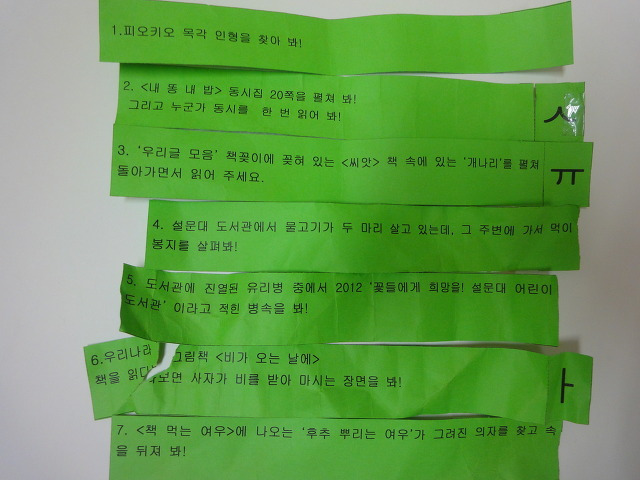 1.피오키오 목각 인형을 찾아 봐!
2. <내 똥 내 밥> 동시집 20쪽을 펼쳐 봐!
그리고 누군가 동시를 한 번 읽어 봐!
ㅅ
3. '우리글 모음' 책꽂이에 꽂혀 있는 <씨앗> 책 속에 있는 '개나리'를 펼쳐
돌아가면서 읽어 주세요.
ㅠ
4. 설문대 도서관에서 물고기가 두 마리 살고 있는데, 그 주변에 가서 먹이
봉지를 살펴봐!
5. 도서관에 진열된 유리병 중에서 2012 '꽃들에게 희망을! 설문대 어린이
도서관' 이라고 적힌 병속을 봐!
6.우리나라 그림책 <비가 오는 날에>
책을 읽다보면 사자가 비를 받아 마시는 장면을 봐!
ㅏ
7. <책 먹는 여우>에 나오는 '후추 뿌리는 여우'가 그려진 의자를 찾고 속
을 뒤져 봐!